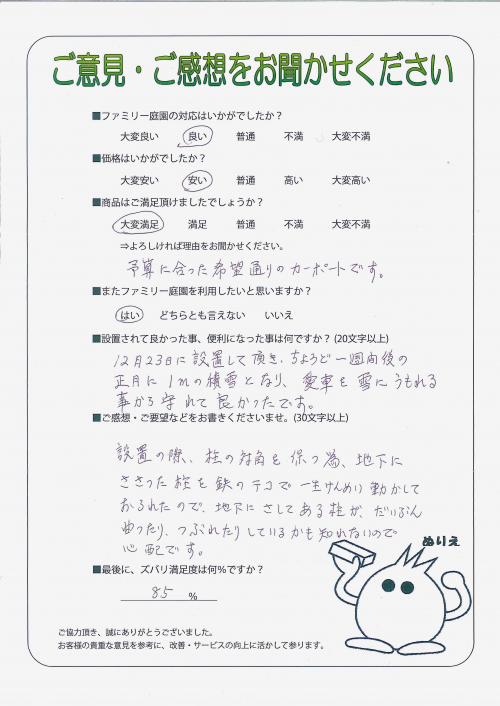 ご意見・ご感想をお聞かせください
■ファミリー庭園の対応はいかがでしたか？
大変良い 良い 普通 不満 大変不満
■価格はいかがでしたか？
大変安い 安い 普通 高い 大変高い
■商品はご満足頂けましたでしょうか？
大変満足 満足 普通 不満 大変不満
⇒よろしければ理由をお聞かせください。
予算に合った希望通りのカーポートです。
■またファミリー庭園を利用したいと思いますか？
はい どちらとも言えない いいえ
■設置されて良かった事、便利になった事は何ですか？(20文字以上)
12月23日に設置して頂き、ちょうど一週間後の
正月に1mの積雪となり、愛車を雪にうもれる
事から守れて良かったです。
■ご感想・ご要望などをお書きくださいませ。(30文字以上)
設置の際、柱の対角を保つ為、地下に
ささった柱を鉄のテコで一生けんめい動かして
おられたので、地下にさしてある柱が、だいぶん
曲ったり、つぶれたりしているかも知れないので
心配です。
ぬりえ
■最後に、ズバリ満足度は何％ですか？
85 %
ご協力頂き、誠にありがとうございました。
お客様の貴重な意見を参考に、改善・サービスの向上に活かして参ります。